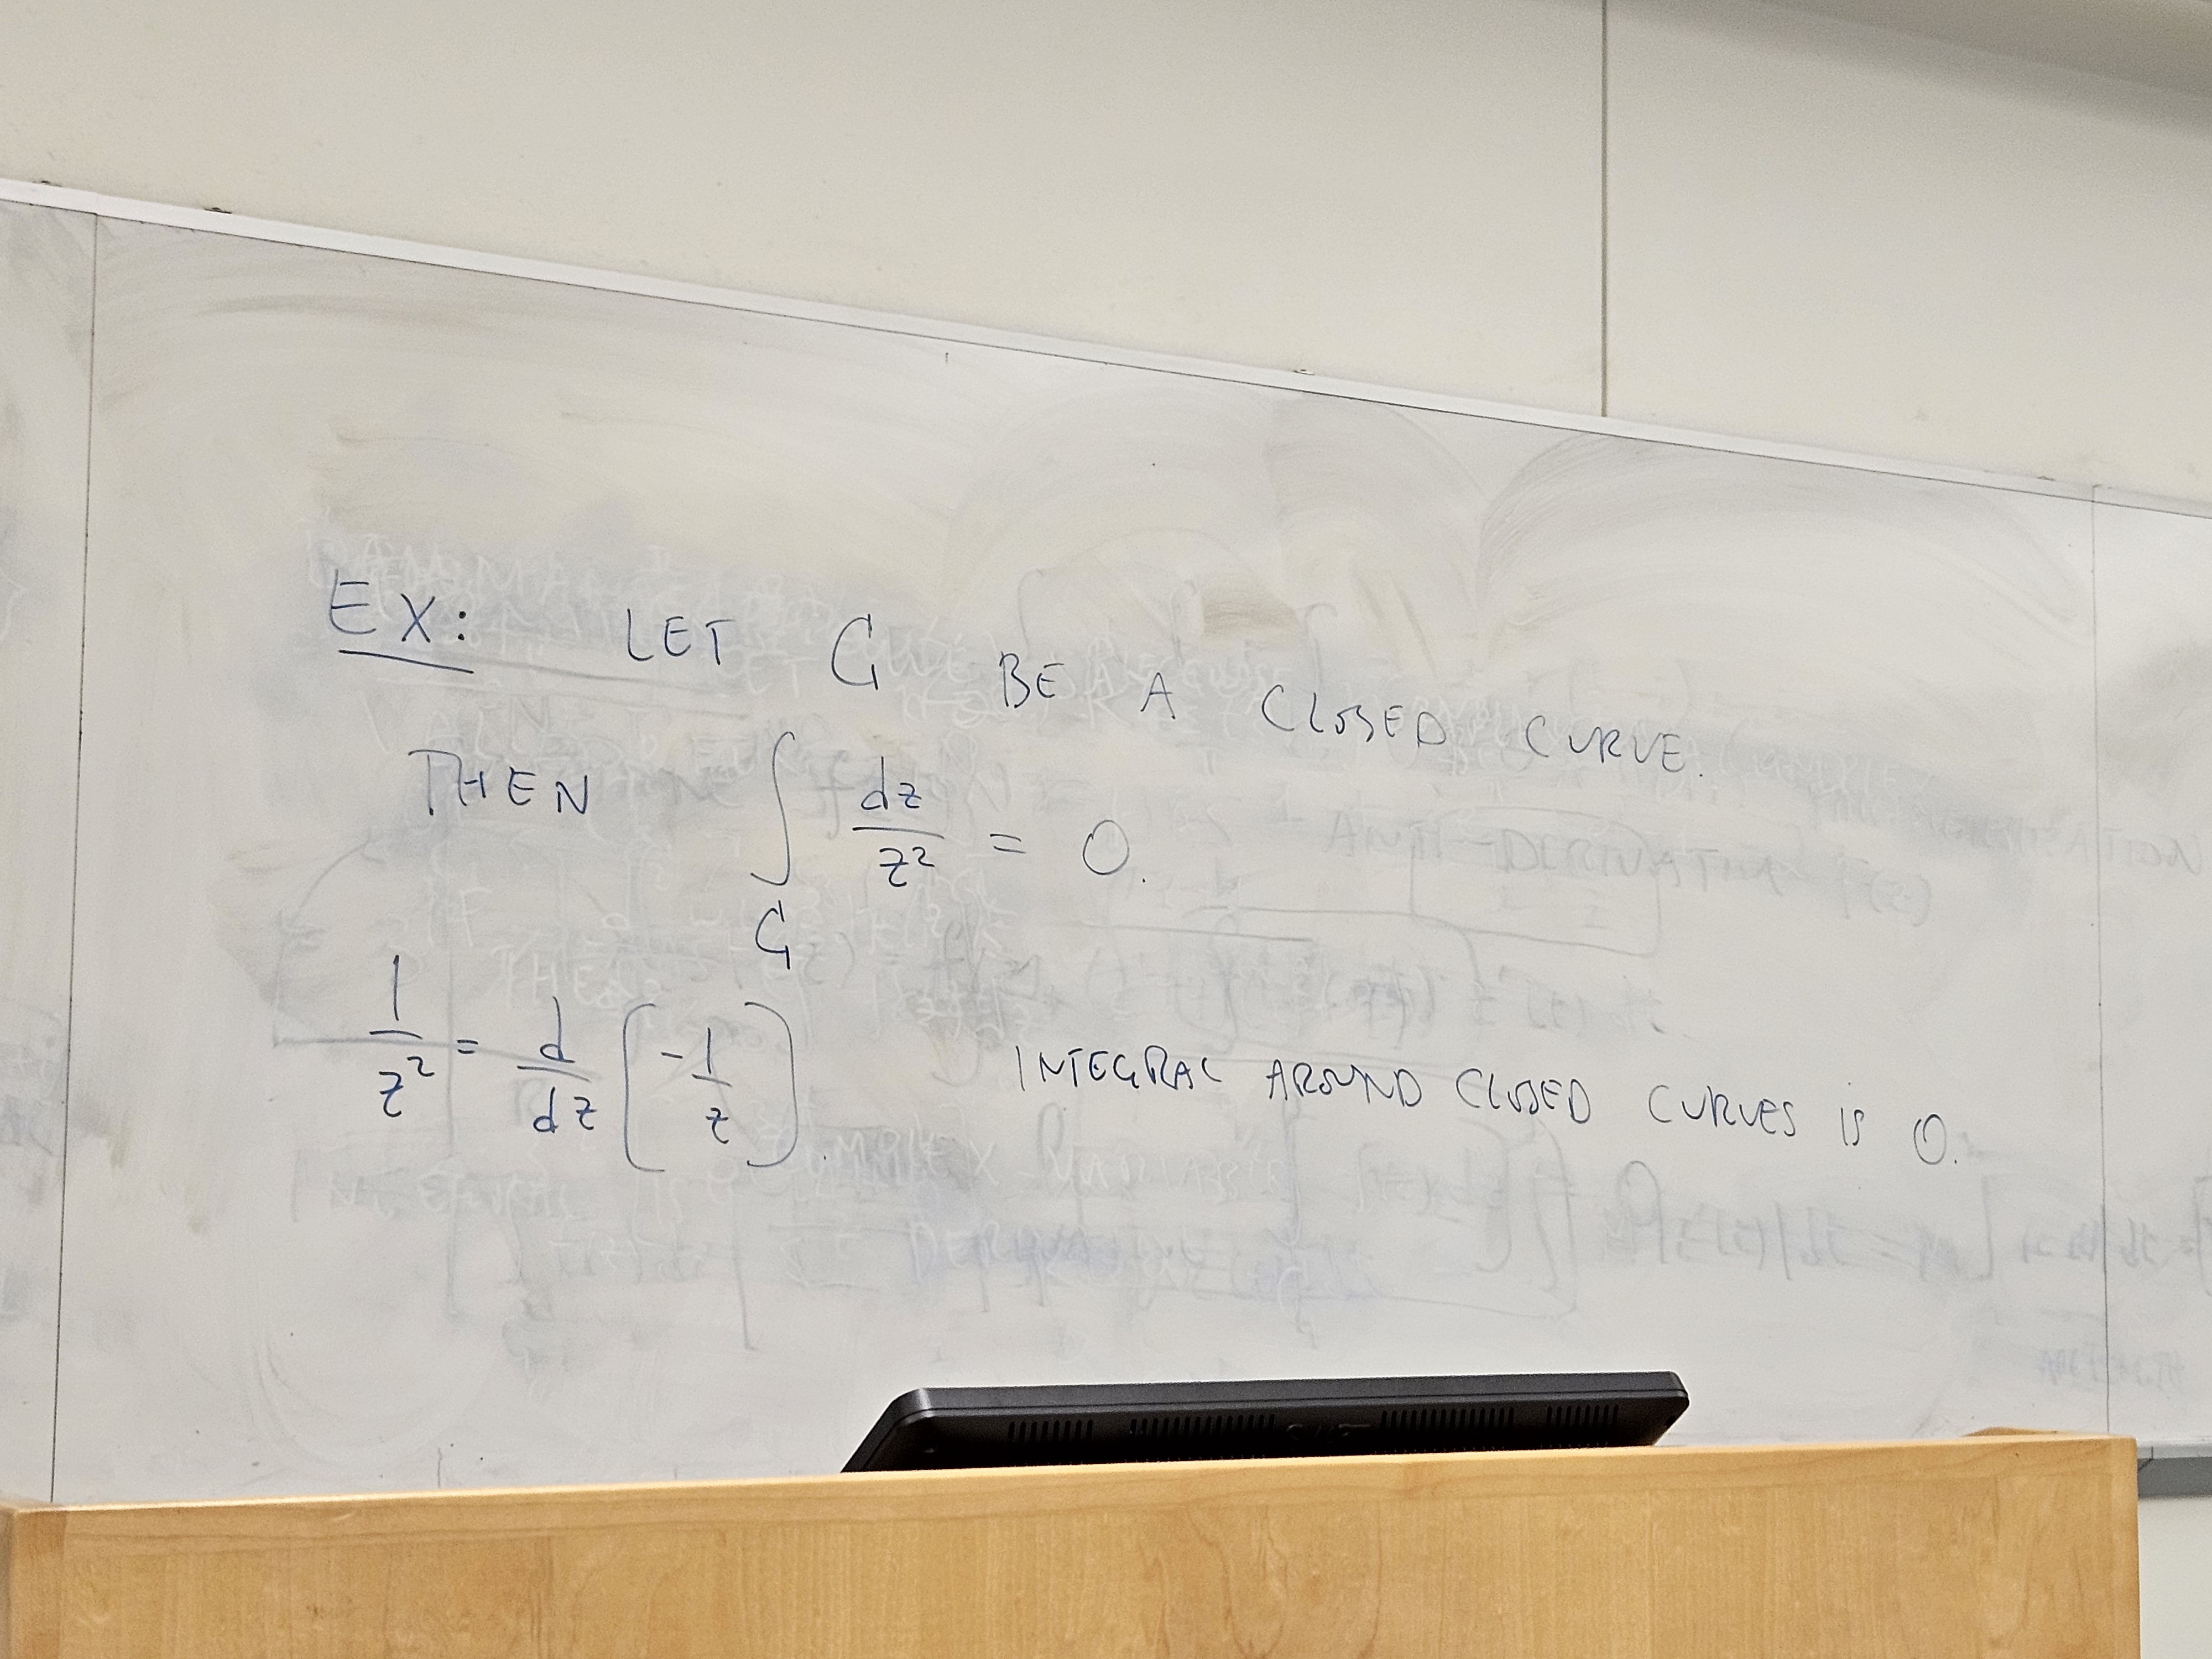 EX: LET C BE A CLOSED CURVE.
THEN ∫_C dz/z² = 0.
1/z² = d/dz (-1/z). INTEGRAL AROUND CLOSED CURVES IS 0.